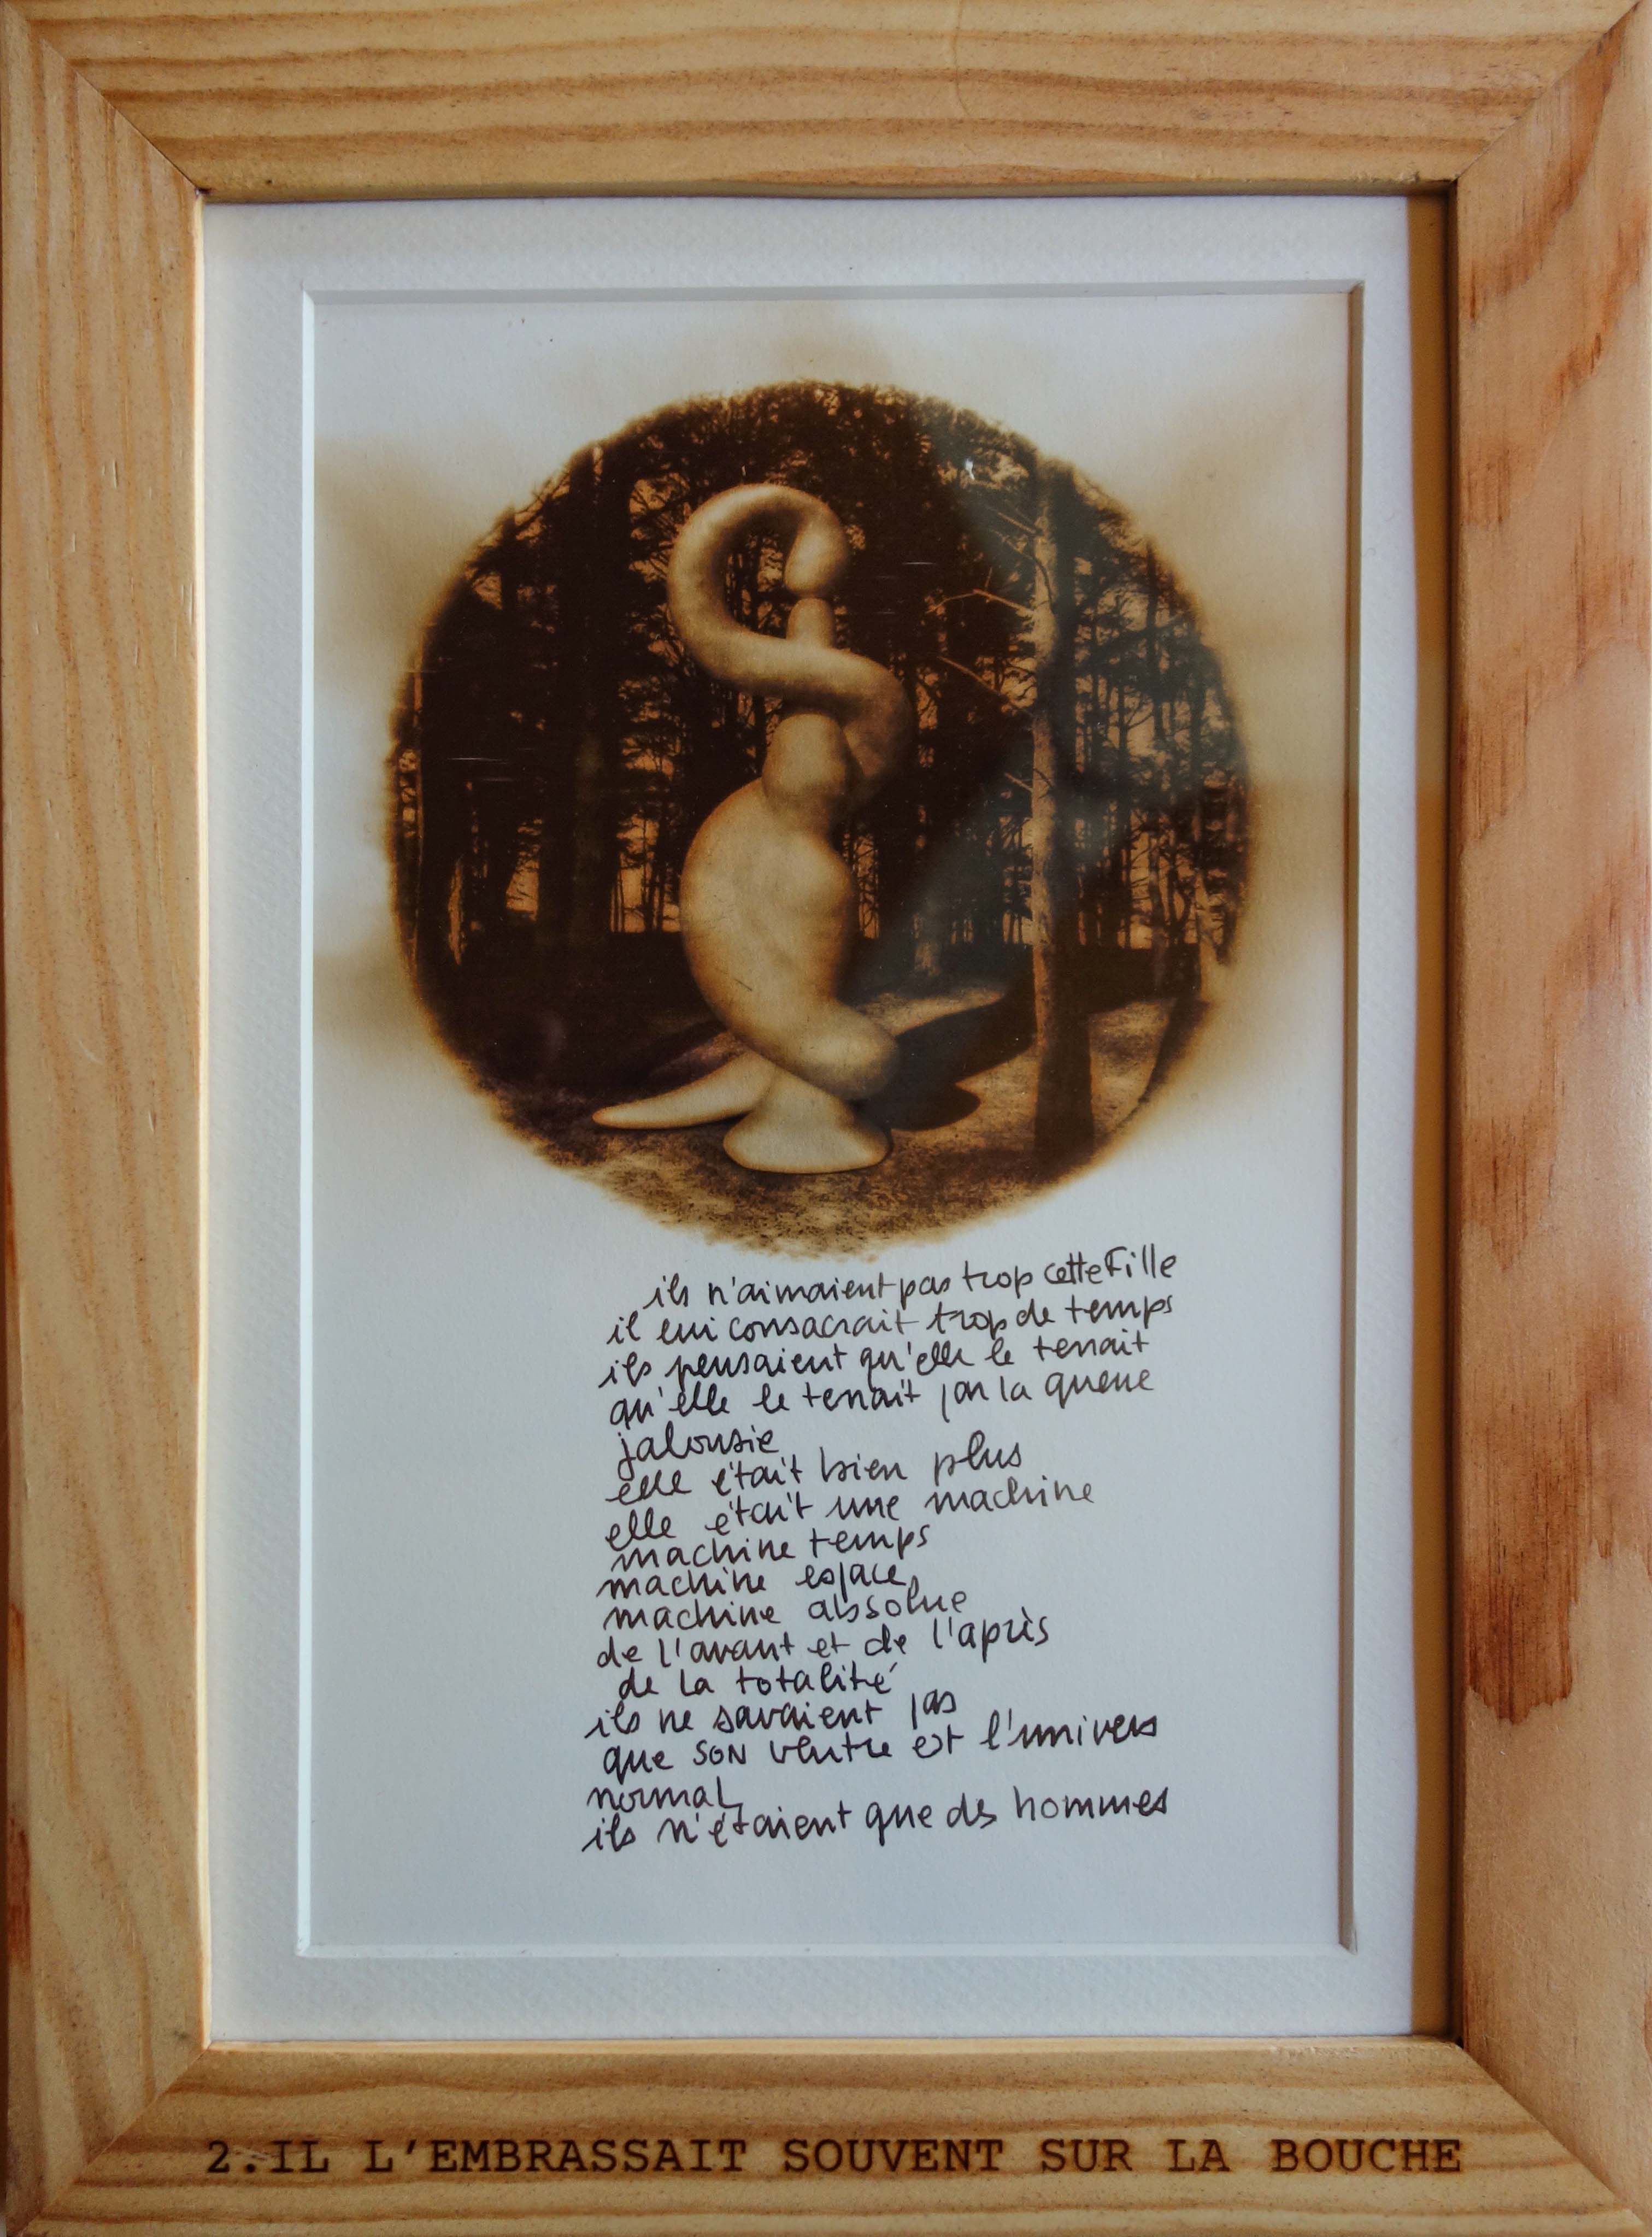 ils n'aimaient pas trop cette Fille
il lui consacrait trop de temps
ils pensaient qu'elle le tenait
qu'elle le tenait par la queue
jalousie
elle était bien plus
elle était une machine
machine temps
machine espace
machine absolue
de l'avant et de l'après
de la totalité
ils ne savaient pas
que SON ventre est l'univers
normal
ils n'étaient que des hommes
2.IL L'EMBRASSAIT SOUVENT SUR LA BOUCHE